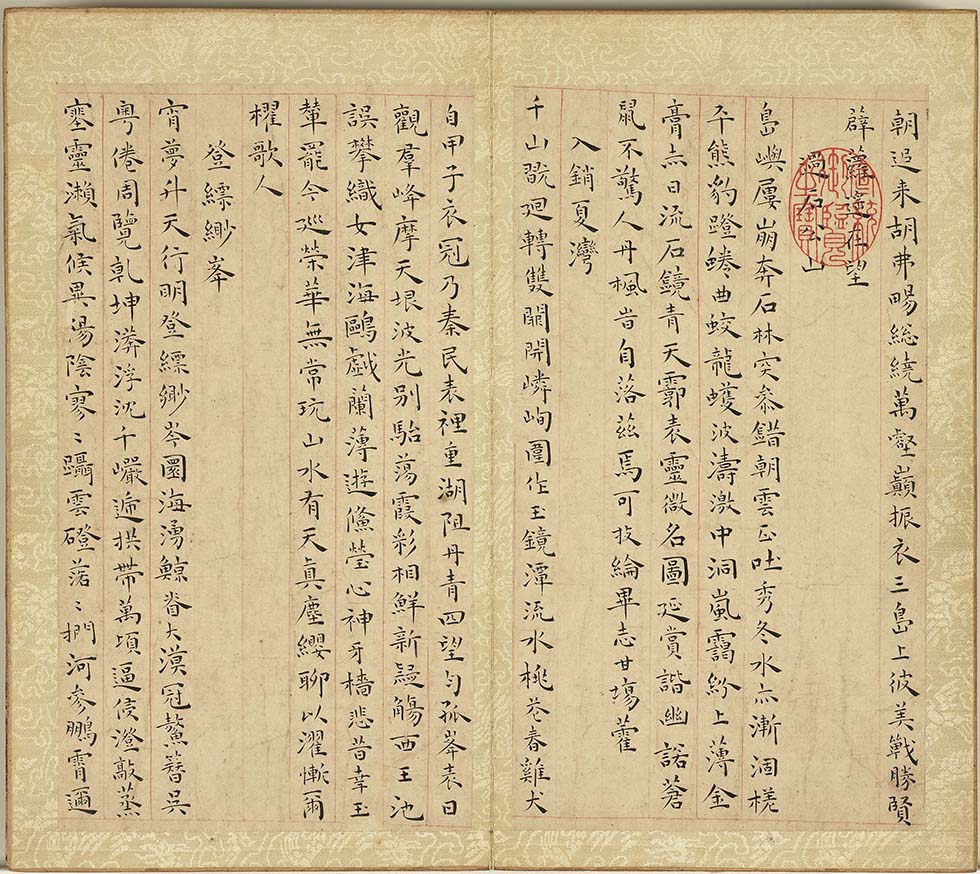 朝追来胡弗暢総繞萬壑巔振衣三島上彼美戰勝賢
薜蘿遥在望
石公山
島嶼屢崩奔石林突叅錯朝雲正吐秀冬水亦漸涸槎
平熊豹蹬蜷曲蛟龍蠖波濤激中洞嵐靄紛上薄金
膏赤日流石鏡青天霩表靈徵名圖延賞諧幽諾蒼
鼠不驚人丹楓皆自落茲焉可投綸畢志甘場藿
入銷夏灣
千山戬廻轉雙關開嶙峋圍作玉鏡潭流水桃花春雞犬
自甲子衣冠乃秦民表裡重湖阻丹青四望勻孤峯袤日
觀羣峰摩天垠波光別駘蕩霞彩相鮮新疑觴西王池
誤攀織女津海鷗戯蘭薄遊鯈瑩心神牙檣悲昔幸玉
輦罷今巡榮華無常玩山水有天真塵纓聊以濯慚爾
櫂歌人
登縹緲峯
宵夢升天行明登縹緲岑圜海湧鯨脊大漠冠鰲簪吳
粤倦周覽乹坤漭浮沈千巘逓拱帶萬頃逼侵澄敲蒸
塞靈瀬氣候異湯陰寥〻躡雲磴落〻捫河參鵬霄邇